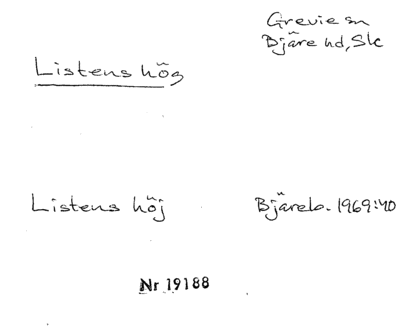 Grevie sn
Bjäre hd, Sk
Listens hög
Listens höj
Bjäreb. 1969:40
Nr 19188